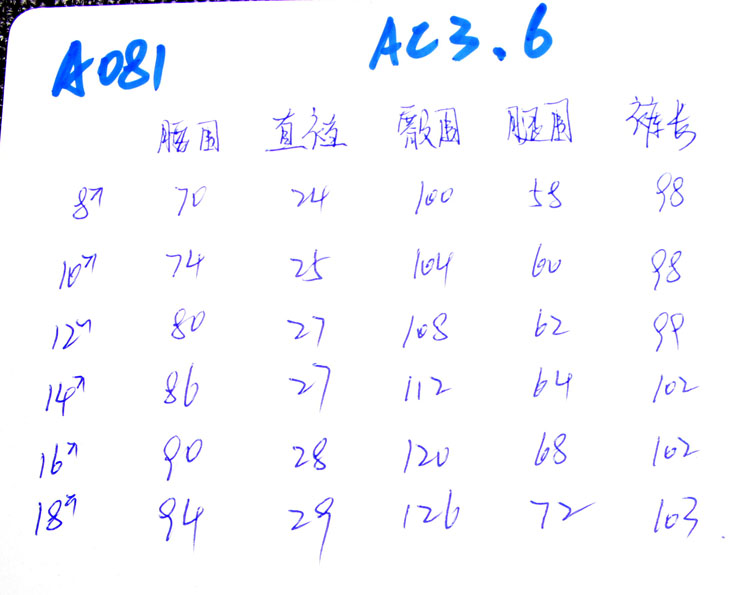 A081 AC3.6
腰围 直裆 臀围 腿围 裤长
8" 70 24 100 58 98
10" 74 25 104 60 98
12" 80 27 108 62 99
14" 86 27 112 64 102
16" 90 28 120 68 102
18" 94 29 126 72 103